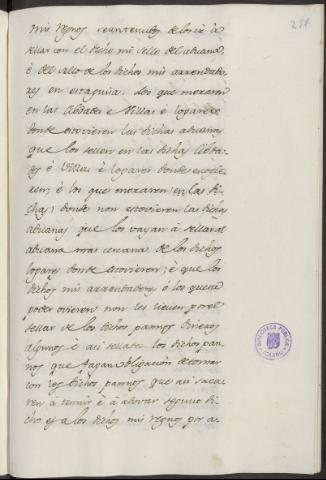 231
mis regnos sean tenudos de los ir á
sellar con el dicho mi sello del aduana,
é del sello de los dichos mis arrendado
res en esta guisa. Los que moraren
en las Cibdades e Villas e logares
donde estovieren las dichas aduanas
que los sellen en las dichas Cibda
des é Villas é logares donde
ren; é los que moraren en las di
chas donde non estovieren las dichas
aduanas que los vayan á sellar al
aduana mas cercana de los dichos
logares donde estovieren; é que los
dichos mis arrendadores ó los que su
poder ovieren non les lieven por el
sellar de los dichos pannos dineros
algunos é asi sellados los dichos pan
nos que fagan obligacion de tornar
con los dichos pannos que asi saca
ren á tennir é á adovar segunt di
cho es a los dichos mis regnos por a-
BIBLIOTECA PÚBLICA
TOLEDO